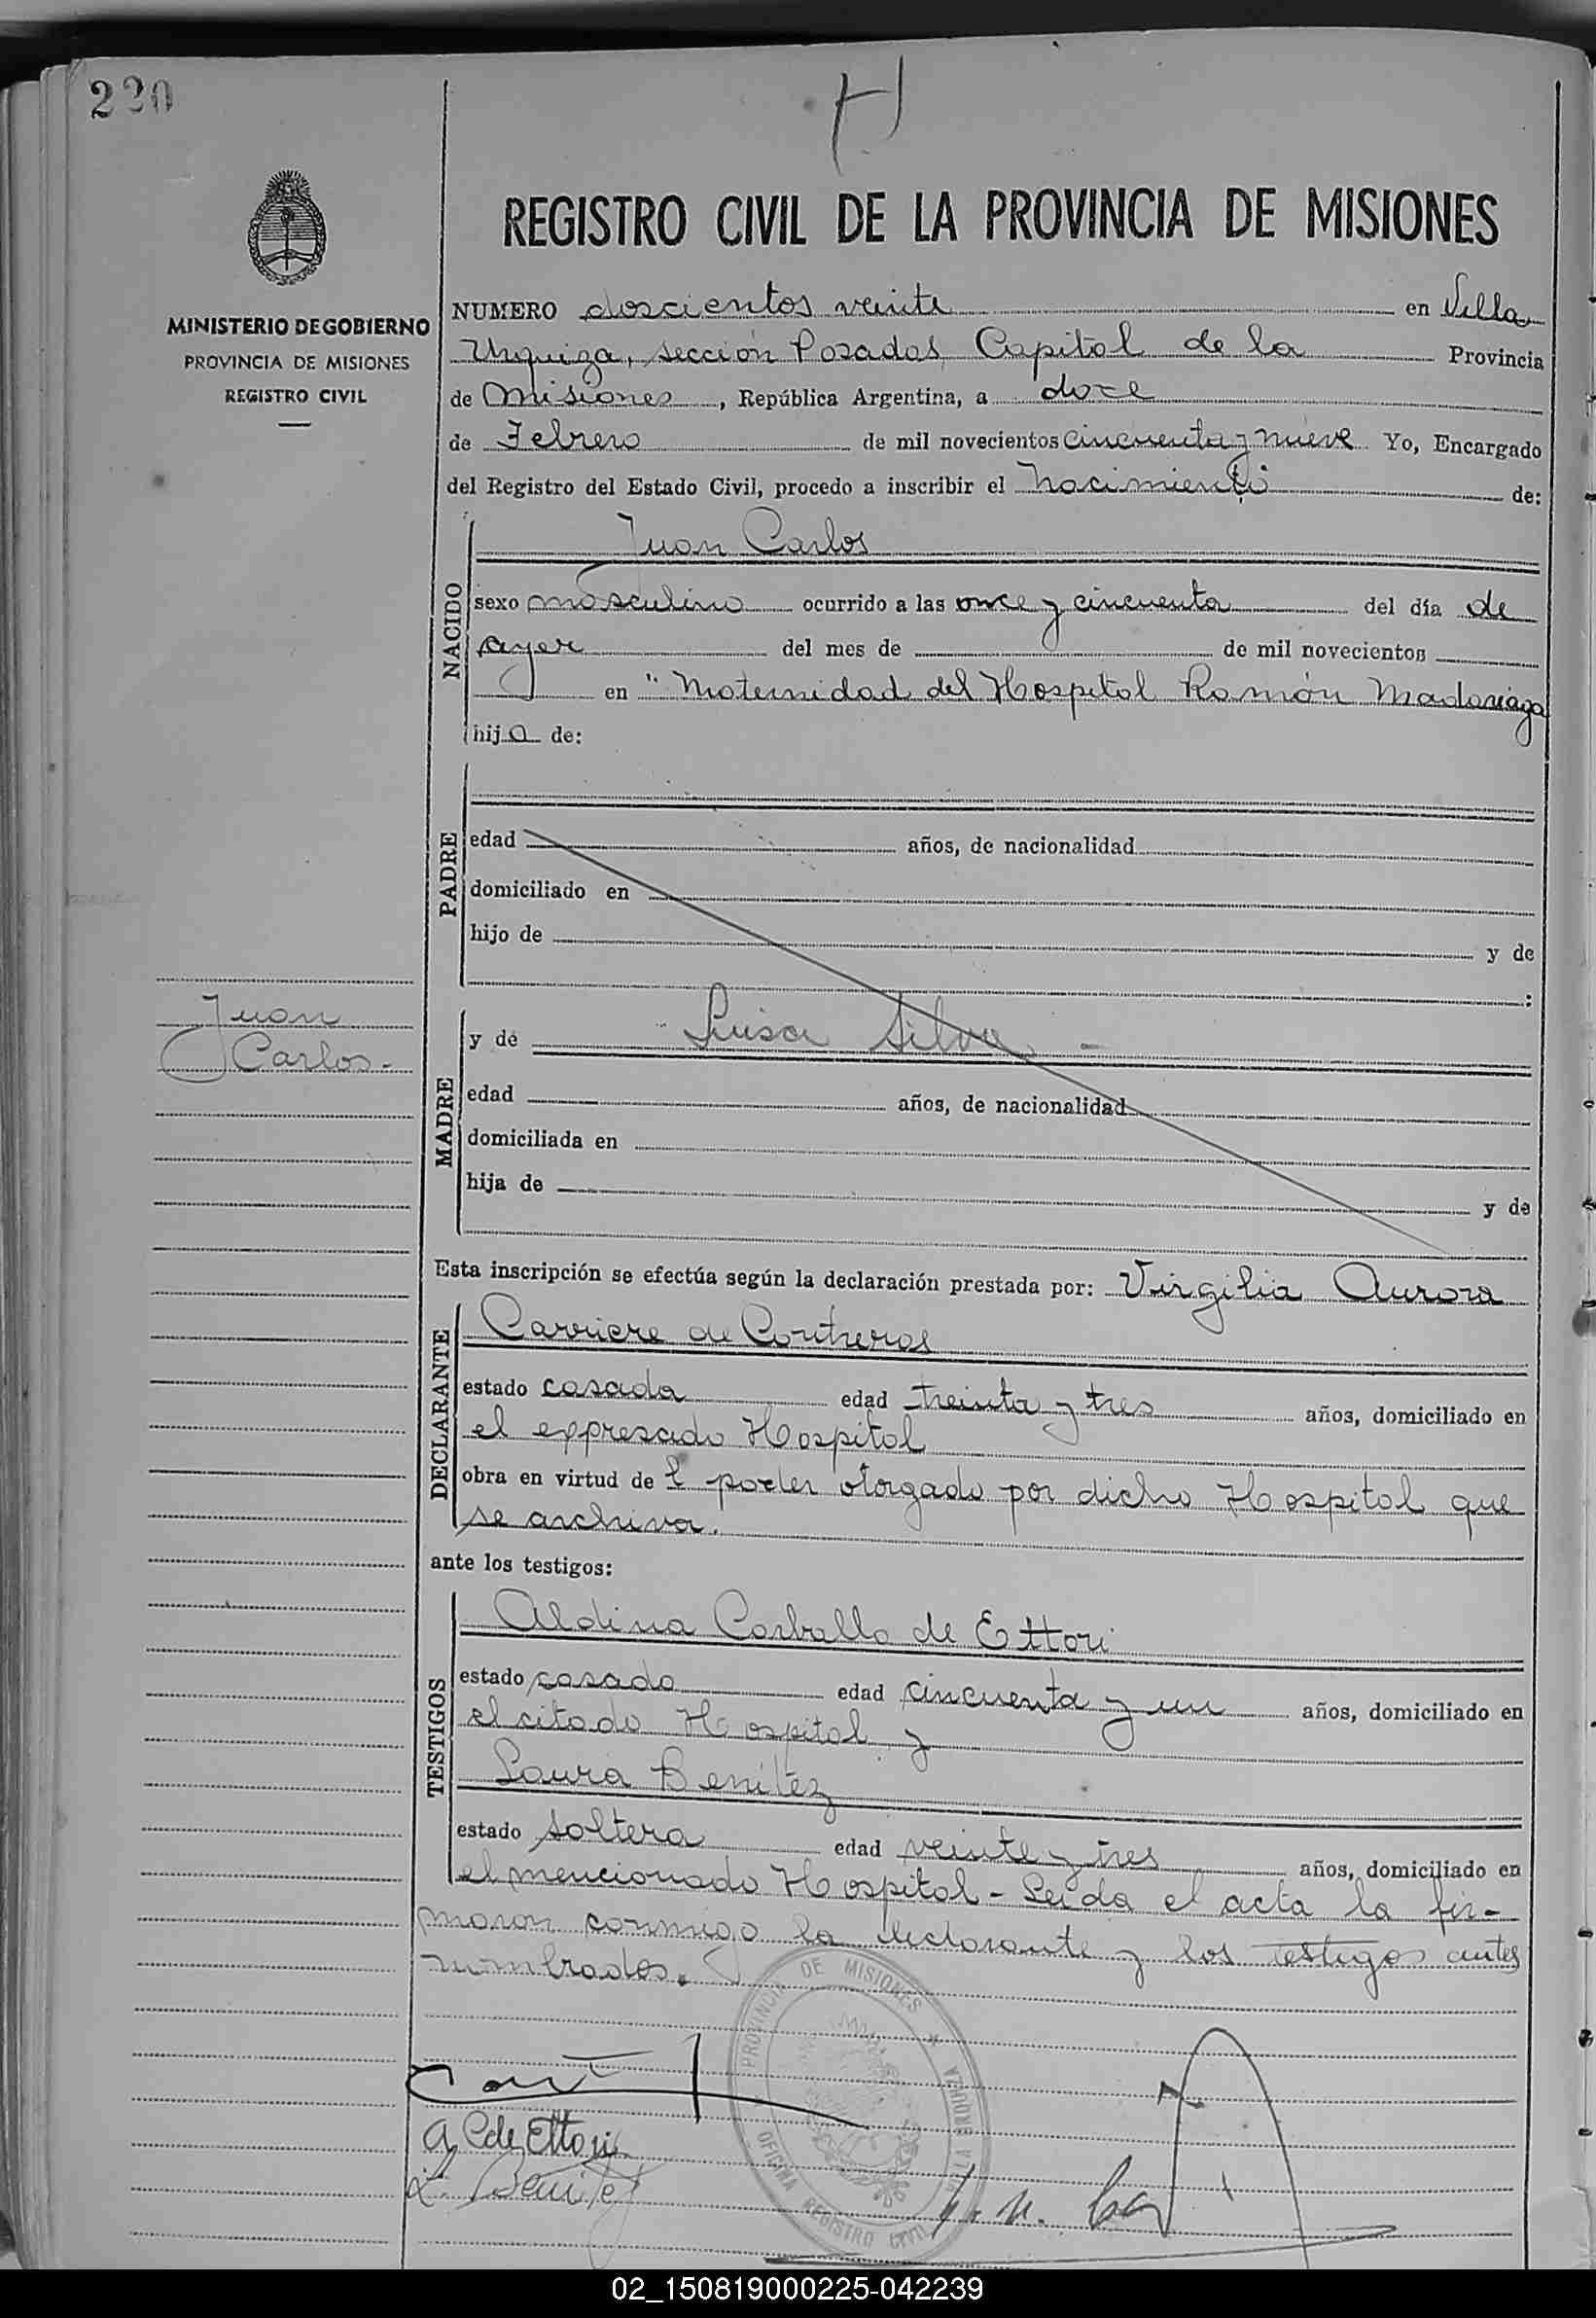 220
H
MINISTERIO DE GOBIERNO
PROVINCIA DE MISIONES
REGISTRO CIVIL
REGISTRO CIVIL DE LA PROVINCIA DE MISIONES
NUMERO doscientos veinte en Villa
Urquiza, sección Posadas Capital de la Provincia
de Misiones, República Argentina, a doce
de Febrero de mil novecientos cincuenta y nueve Yo, Encargado
del Registro del Estado Civil, procedo a inscribir el Nacimiento de:
NACIDO
Juan Carlos
sexo masculino ocurrido a las once y cincuenta del día de
ayer del mes de de mil novecientos
en "Maternidad del Hospital Ramón Madariaga
hijo de:
PADRE
edad años, de nacionalidad
domiciliado en
hijo de y de
:
Juan
Carlos.-
MADRE
y de Luisa Silva -
edad años, de nacionalidad
domiciliada en
hija de y de
Esta inscripción se efectúa según la declaración prestada por: Virgilia Aurora
DECLARANTE
Carriere de Contreras
estado casada edad treinta y tres años, domiciliado en
el expresado Hospital
obra en virtud de l poder otorgado por dicho Hospital que
se archiva.
ante los testigos:
TESTIGOS
Aldina Carballo de Ettori
estado casado edad cincuenta y un años, domiciliado en
el citado Hospital y
Laura Benítez
estado soltera edad veinte y tres años, domiciliado en
el mencionado Hospital - Leida el acta la fir-
maron conmigo la declarante y los testigos antes
nombrados.
PROVINCIA DE MISIONES
OFICINA REGISTRO CIVIL
VILLA URQUIZA
A C de Ettori
L. Benitez
02_150819000225-042239